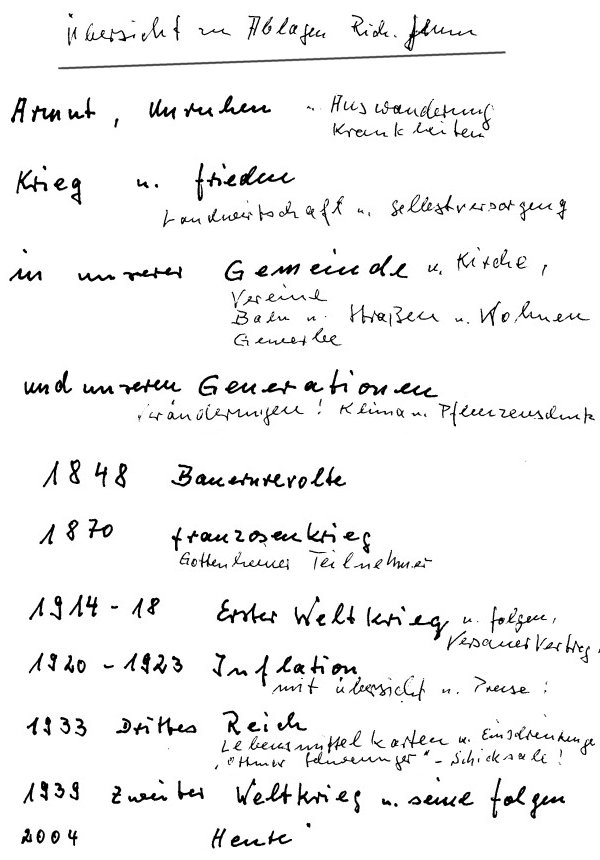 Übersicht zu Ablagen Rich.
Armut, Unruhen u. Auswanderung
Krankheiten
Krieg u. frieden
Landwirtschaft u. Selbstversorgung
in unserer Gemeinde u. Kirche,
Vereine
Bahn u. Straßen u. Wohnen
Gewerbe
und unseren Generationen
Veränderungen! Klima u. Pflanzenschutz
1848 Bauernrevolte
1870 franzosenkrieg
Gottenheimer Teilnehmer
1914-18 Erster Weltkrieg u. folgen,
Versaner Vertrag,
1920-1923 Inflation
mit Übersicht u. Preise!
1933 Drittes Reich
Lebensmittelkarten u. Einschränkunge
"- Schicksale!
1939 Zweiter Weltkrieg u. seine folgen
2004 Heute